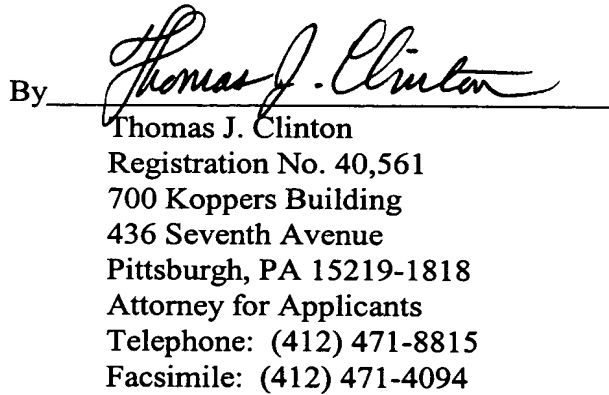 By Thomas J. Clinton
Thomas J. Clinton
Registration No. 40,561
700 Koppers Building
436 Seventh Avenue
Pittsburgh, PA 15219-1818
Attorney for Applicants
Telephone: (412) 471-8815
Facsimile: (412) 471-4094